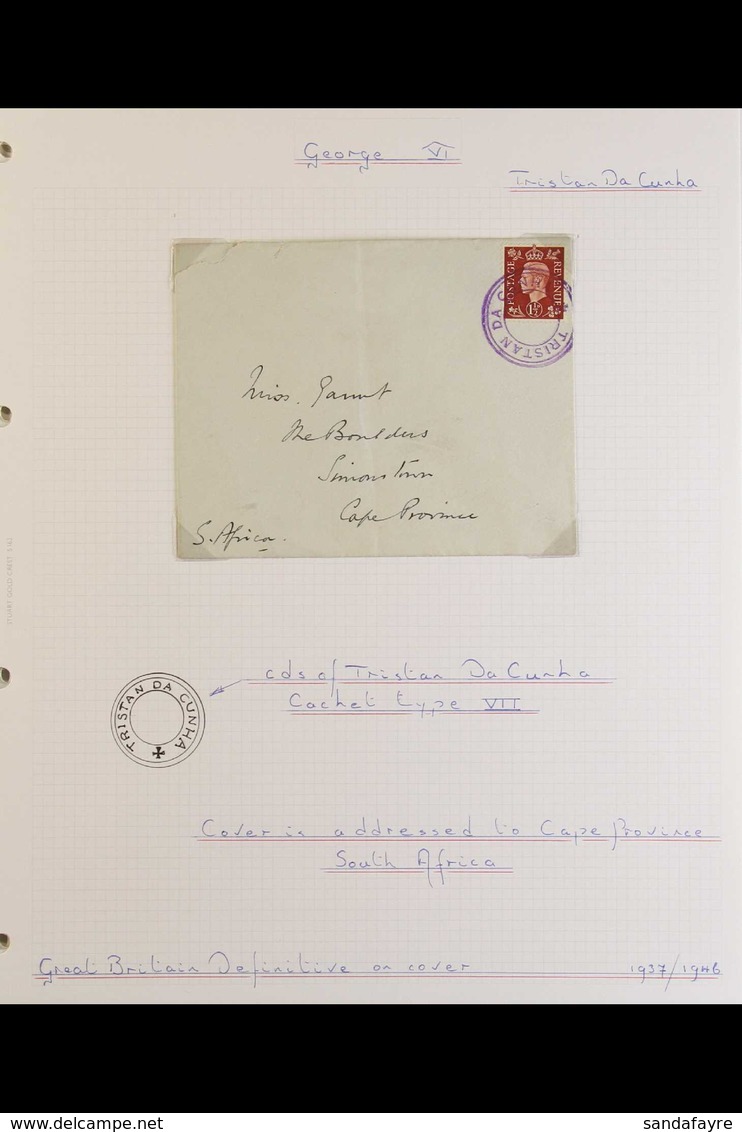 George VI
Tristan Da Cunha
POSTAGE REVENUE
1½D
TRISTAN DA CUNHA
Miss.
The Boulders
Simonstown
Cape Province
S. Africa.
cds of Tristan Da Cunha
Cachet type VII
TRISTAN DA CUNHA
Cover is addressed to Cape Province
South Africa
Great Britain Definitive on cover 1937/1946
www.delcampe.net
sandafayre